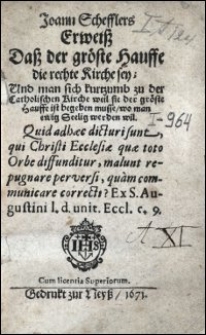 Joann Schefflers
Erweiß
Daß der gröste Hauffe
die rechte Kirche sey:
Und man sich kurtzumb zu der
Catholischen Kirche weil sie der gröste
Hauffe ist begeben müsse/ wo man
ewig Seelig werden wil.
I-964
Quid adhæc dicturi sunt,
qui Christi Ecclesiæ quæ toto
Orbe diffunditur, malunt re
pugnare perversi, quàm com-
municare correcti? Ex S. Au-
gustini l. d. unit. Eccl. c. 9.
XI
IHS
Cum licentia Superiorum.
Gedrukt zur Neyß/ 1673.